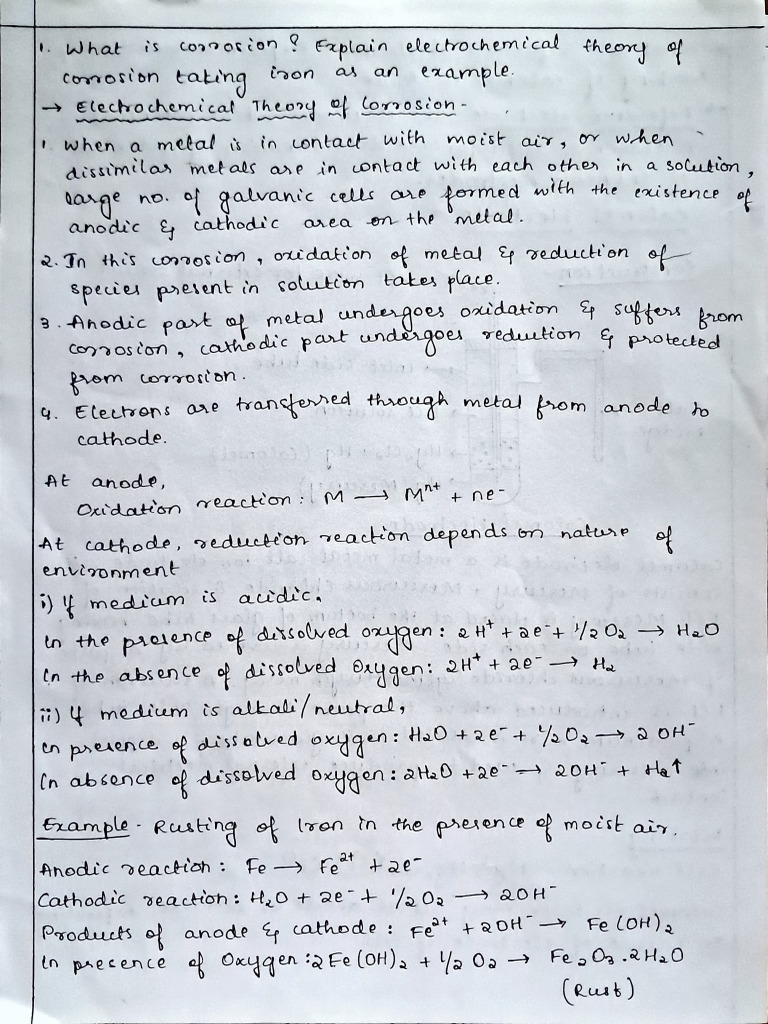 1. What is corrosion ? Explain electrochemical theory of
corrosion taking iron as an example.
→ Electrochemical Theory of Corrosion -
1. When a metal is in contact with moist air, or when
dissimilar metals are in contact with each other in a solution,
large no. of galvanic cells are formed with the existence of
anodic & cathodic area on the metal.
2. In this corrosion, oxidation of metal & reduction of
species present in solution takes place.
3. Anodic part of metal undergoes oxidation & suffers from
corrosion, cathodic part undergoes reduction & protected
from corrosion.
4. Electrons are transferred through metal from anode to
cathode.
At anode,
Oxidation reaction : M → Mⁿ⁺ + ne⁻
At cathode, reduction reaction depends on nature of
environment
i) If medium is acidic,
In the presence of dissolved oxygen : 2H⁺ + 2e⁻ + 1/2 O₂ → H₂O
In the absence of dissolved Oxygen : 2H⁺ + 2e⁻ → H₂
ii) If medium is alkali/neutral,
In presence of dissolved oxygen : H₂O + 2e⁻ + 1/2 O₂ → 2 OH⁻
In absence of dissolved oxygen : 2H₂O + 2e⁻ → 2OH⁻ + H₂↑
Example - Rusting of Iron in the presence of moist air.
Anodic reaction : Fe → Fe²⁺ + 2e⁻
Cathodic reaction : H₂O + 2e⁻ + 1/2 O₂ → 2OH⁻
Products of anode & cathode : Fe²⁺ + 2OH⁻ → Fe(OH)₂
In presence of Oxygen : 2Fe(OH)₂ + 1/2 O₂ → Fe₂O₃.2H₂O
(Rust)